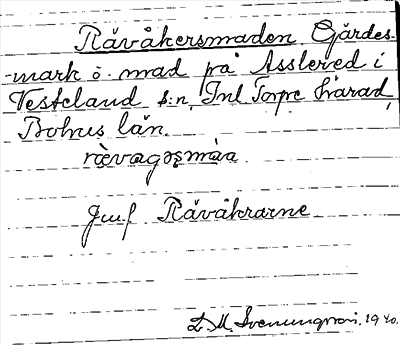 Råvåkersmaden Gärdes-
-mark o. mad på Asslered i
Vesteland s:n, Inl. Torpe härad,
Bohus län.
Jmf Råvåkrarne
L. M. Svenungsson. 1940.